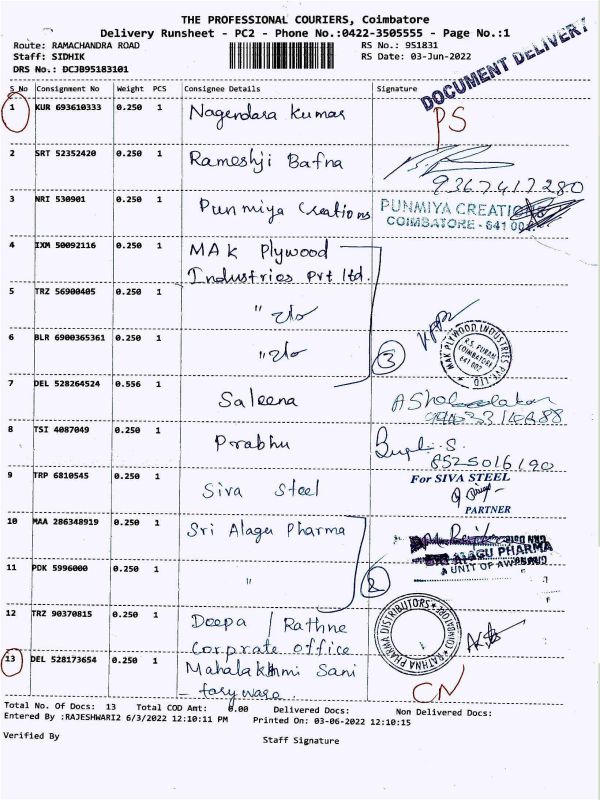 THE PROFESSIONAL COURIERS, Coimbatore
Delivery Runsheet - PC2 - Phone No.:0422-3505555 - Page No.:1
Route: RAMACHANDRA ROAD RS No.: 951831
Staff: SIDHIK RS Date: 03-Jun-2022
DRS No.: DCJB95183101
DOCUMENT DELIVERY
S_No Consignment No Weight PCS Consignee Details Signature
1 KUR 693610333 0.250 1 Nagendara Kumar PS
2 SRT 52352420 0.250 1 Rameshji Bafna
9367417280
3 NRI 530901 0.250 1 Punmiya Creations PUNMIYA CREATIONS
COIMBATORE - 641 002
4 IXM 50092116 0.250 1 MAK Plywood
Industries Pvt ltd.
5 TRZ 56900405 0.250 1 " c/o
6 BLR 6900365361 0.250 1 " c/o 3
MAK PLYWOOD INDUSTRIES PVT. LTD.
R.S. PURAM
COIMBATORE
641 002
7 DEL 528264524 0.556 1 Saleena
8 TSI 4087049 0.250 1 Prabhu
8525016190
9 TRP 6810545 0.250 1 Siva Steel For SIVA STEEL
PARTNER
10 MAA 286348919 0.250 1 Sri Alagu Pharma
ALAGU PHARMA
A UNIT OF
11 PDK 5996000 0.250 1 " 2
12 TRZ 90370815 0.250 1 Deepa / Rathne
Corprate office
RATHNA PHARMA DISTRIBUTORS
13 DEL 528173654 0.250 1 Mahalakhmi Sani
- tarywara CN
Total No. Of Docs: 13 Total COD Amt: 0.00 Delivered Docs: Non Delivered Docs:
Entered By :RAJESHWARI2 6/3/2022 12:10:11 PM Printed On: 03-06-2022 12:10:15
Verified By Staff Signature